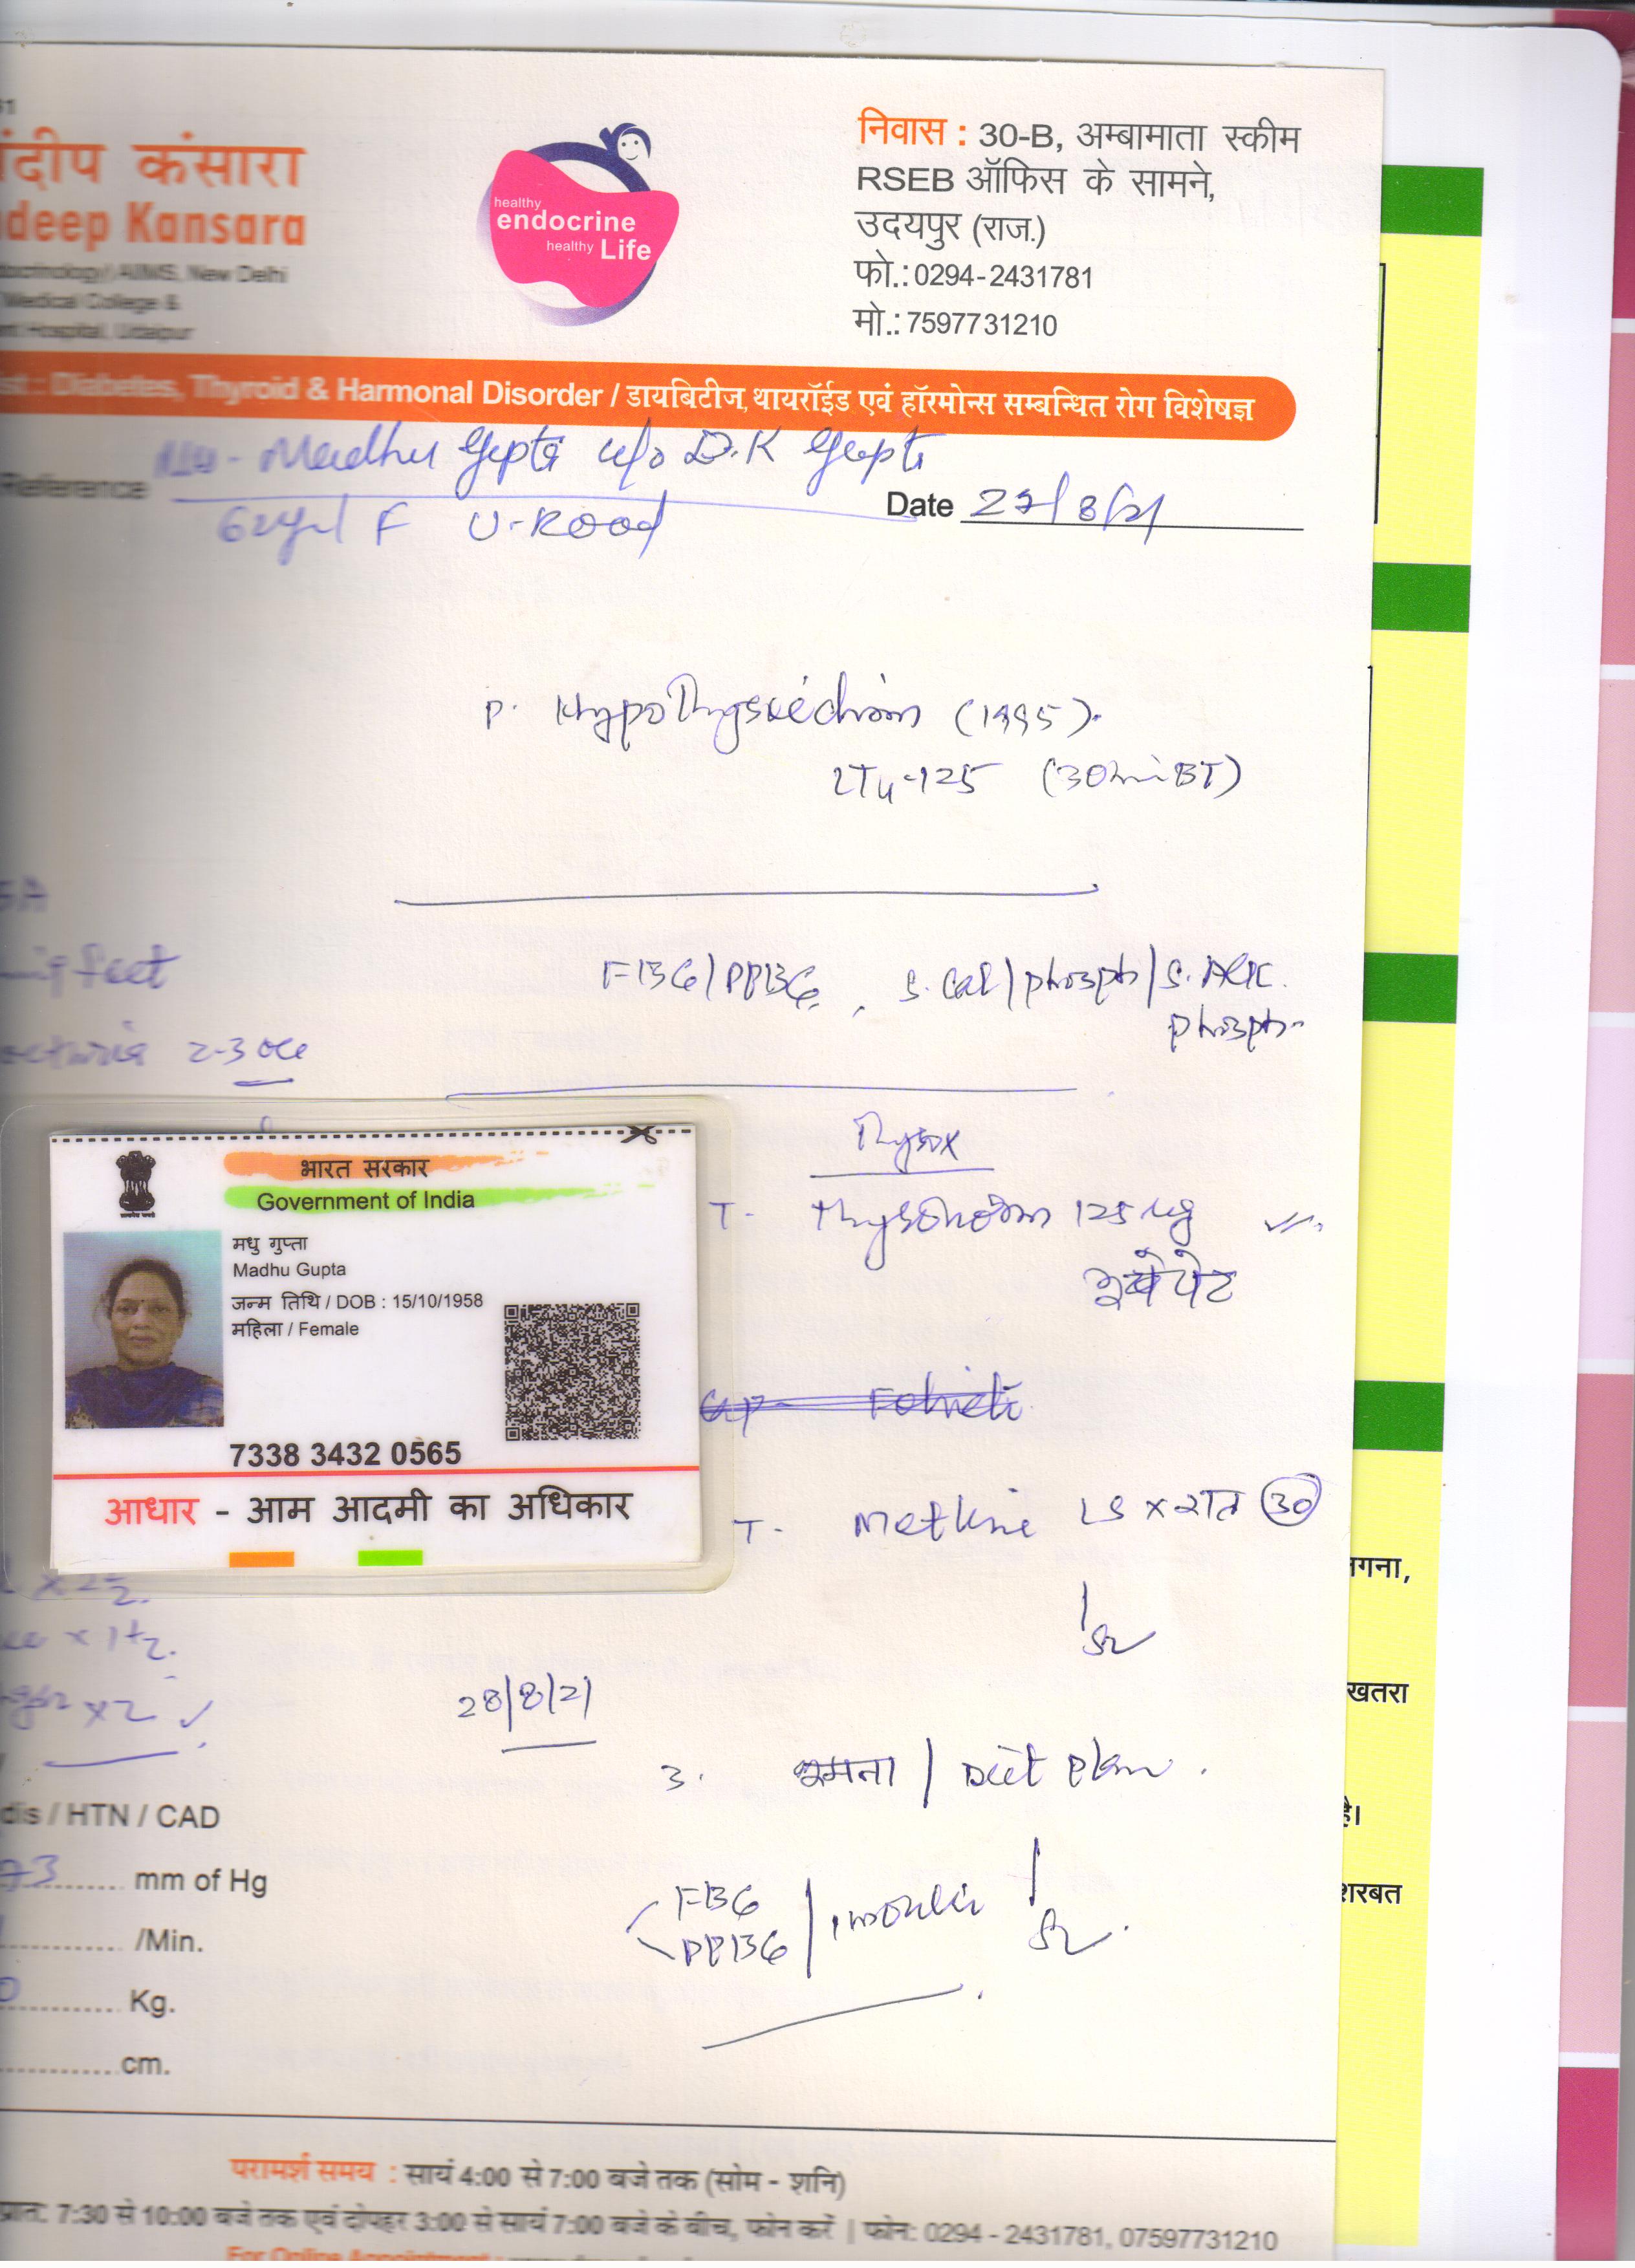 ंदीप कंसारा
deep Kansara
AIIMS, New Delhi
Medical College &
Hospital, Udaipur
healthy
endocrine
healthy Life
निवास : 30-B, अम्बामाता स्कीम
RSEB ऑफिस के सामने,
उदयपुर (राज.)
फो.: 0294-2431781
मो.: 7597731210
: Diabetes, Thyroid & Harmonal Disorder / डायबिटीज, थायरॉईड एवं हॉरमोन्स सम्बन्धित रोग विशेषज्ञ
Madhu Gupta w/o D.K Gupta
Reference
Date 27/8/21
F U-Road
P. Hypothyroidism (1995).
LT4-125 (30min BT)
feet
FBG/PPBG, S. Cal/phosph/S. Alk.
phosph.
2-3
Thyrox
T. Thyronorm 125 ug
T. 15 x रात 30
भारत सरकार
Government of India
मधु गुप्ता
Madhu Gupta
जन्म तिथि / DOB : 15/10/1958
महिला / Female
7338 3432 0565
आधार - आम आदमी का अधिकार
28/8/21
x 2
3. घूमना / Diet plan.
FBG
PPBG
dis / HTN / CAD
mm of Hg
/Min.
Kg.
cm.
गना,
खतरा
है।
शरबत
परामर्श समय : सायं 4:00 से 7:00 बजे तक (सोम - शनि)
प्रात: 7:30 से 10:00 बजे तक एवं दोपहर 3:00 से सायं 7:00 बजे के बीच, फोन करें | फोन: 0294 - 2431781, 07597731210
For Online Appointment :